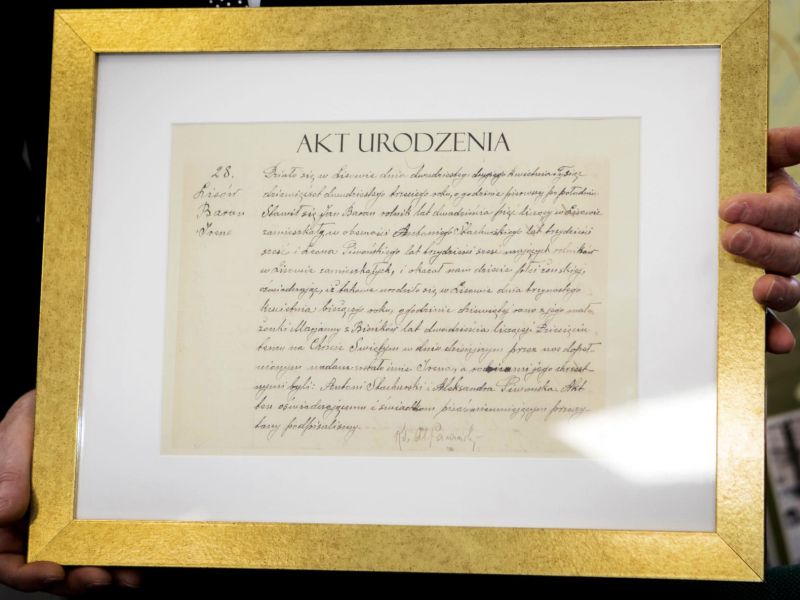 AKT URODZENIA
28.
Lisów
Baran
Irena
Działo się w Lisowie dnia dwudziestego drugiego kwietnia tysiąc
dziewięćset dwudziestego trzeciego roku, o godzinie pierwszej po południu.
Stawił się Jan Baran rolnik lat dwadzieścia pięć liczący w Lisowie
zamieszkały, w obecności Antoniego Stachurskiego lat trzydzieści
sześć i Leona Piwońskiego lat trzydzieści sześć mających rolników
w Lisowie zamieszkałych, i okazał nam dziecię płci żeńskiej,
oświadczając, iż takowe urodziło się w Lisowie dnia trzynastego
kwietnia, bieżącego roku, o godzinie dziewiątej rano z jego mał-
żonki Marjanny z Bieńków lat dwadzieścia liczącej Dziecięciu
temu na Chrzcie Świętym w dniu dzisiejszym przez nas dopeł-
nionym nadane zostało imię Irena, a rodzicami jego chrzest-
nymi byli: Antoni Stachurski i Aleksandra Piwońska. Akt
ten oświadczającemu i świadkom przeczy-
tany podpisaliśmy.